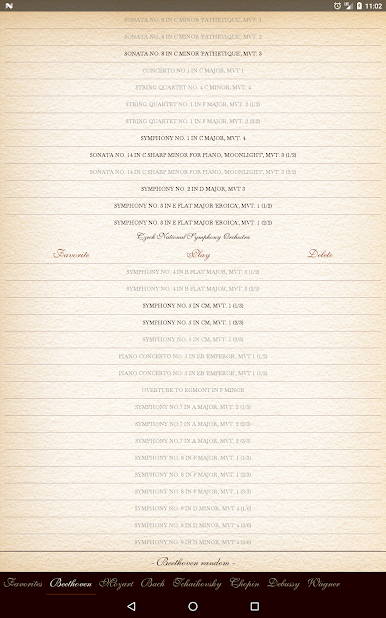 11:02
SONATA NO. 8 IN C MINOR PATHETIQUE, MVT. 1
SONATA NO. 8 IN C MINOR PATHETIQUE, MVT. 2
SONATA NO. 8 IN C MINOR PATHETIQUE, MVT. 3
CONCERTO NO.1 IN C MAJOR, MVT. 1
STRING QUARTET NO. 4 C MINOR, MVT. 4
STRING QUARTET NO. 1 IN F MAJOR, MVT. 2 (1/2)
STRING QUARTET NO. 1 IN F MAJOR, MVT. 2 (2/2)
SYMPHONY NO. 1 IN C MAJOR, MVT. 4
SONATA NO. 14 IN C SHARP MINOR FOR PIANO, 'MOONLIGHT', MVT. 3 (1/2)
SONATA NO. 14 IN C SHARP MINOR FOR PIANO, 'MOONLIGHT', MVT. 3 (2/2)
SYMPHONY NO. 2 IN D MAJOR, MVT 3
SYMPHONY NO. 3 IN E FLAT MAJOR 'EROICA', MVT. 1 (1/2)
SYMPHONY NO. 3 IN E FLAT MAJOR 'EROICA', MVT. 1 (2/2)
Czech National Symphony Orchestra
Favorite Play Delete
SYMPHONY NO. 4 IN B FLAT MAJOR, MVT. 3 (1/2)
SYMPHONY NO. 4 IN B FLAT MAJOR, MVT. 3 (2/2)
SYMPHONY NO. 5 IN CM, MVT. 1 (1/3)
SYMPHONY NO. 5 IN CM, MVT. 1 (2/3)
SYMPHONY NO. 5 IN CM, MVT. 1 (3/3)
PIANO CONCERTO NO. 5 IN EB 'EMPEROR', MVT 1 (1/2)
PIANO CONCERTO NO. 5 IN EB 'EMPEROR', MVT 1 (2/2)
OVERTURE TO EGMONT IN F MINOR
SYMPHONY NO.7 IN A MAJOR, MVT. 2 (1/3)
SYMPHONY NO.7 IN A MAJOR, MVT. 2 (2/3)
SYMPHONY NO.7 IN A MAJOR, MVT. 2 (3/3)
SYMPHONY NO. 8 IN F MAJOR, MVT. 1 (1/3)
SYMPHONY NO. 8 IN F MAJOR, MVT. 1 (2/3)
SYMPHONY NO. 8 IN F MAJOR, MVT. 1 (3/3)
SYMPHONY NO. 9 IN D MINOR, MVT. 4 (1/6)
SYMPHONY NO. 9 IN D MINOR, MVT. 4 (2/6)
SYMPHONY NO. 9 IN D MINOR, MVT. 4 (3/6)
- Beethoven random -
Favorites Beethoven Mozart Bach Tchaikovsky Chopin Debussy Wagner